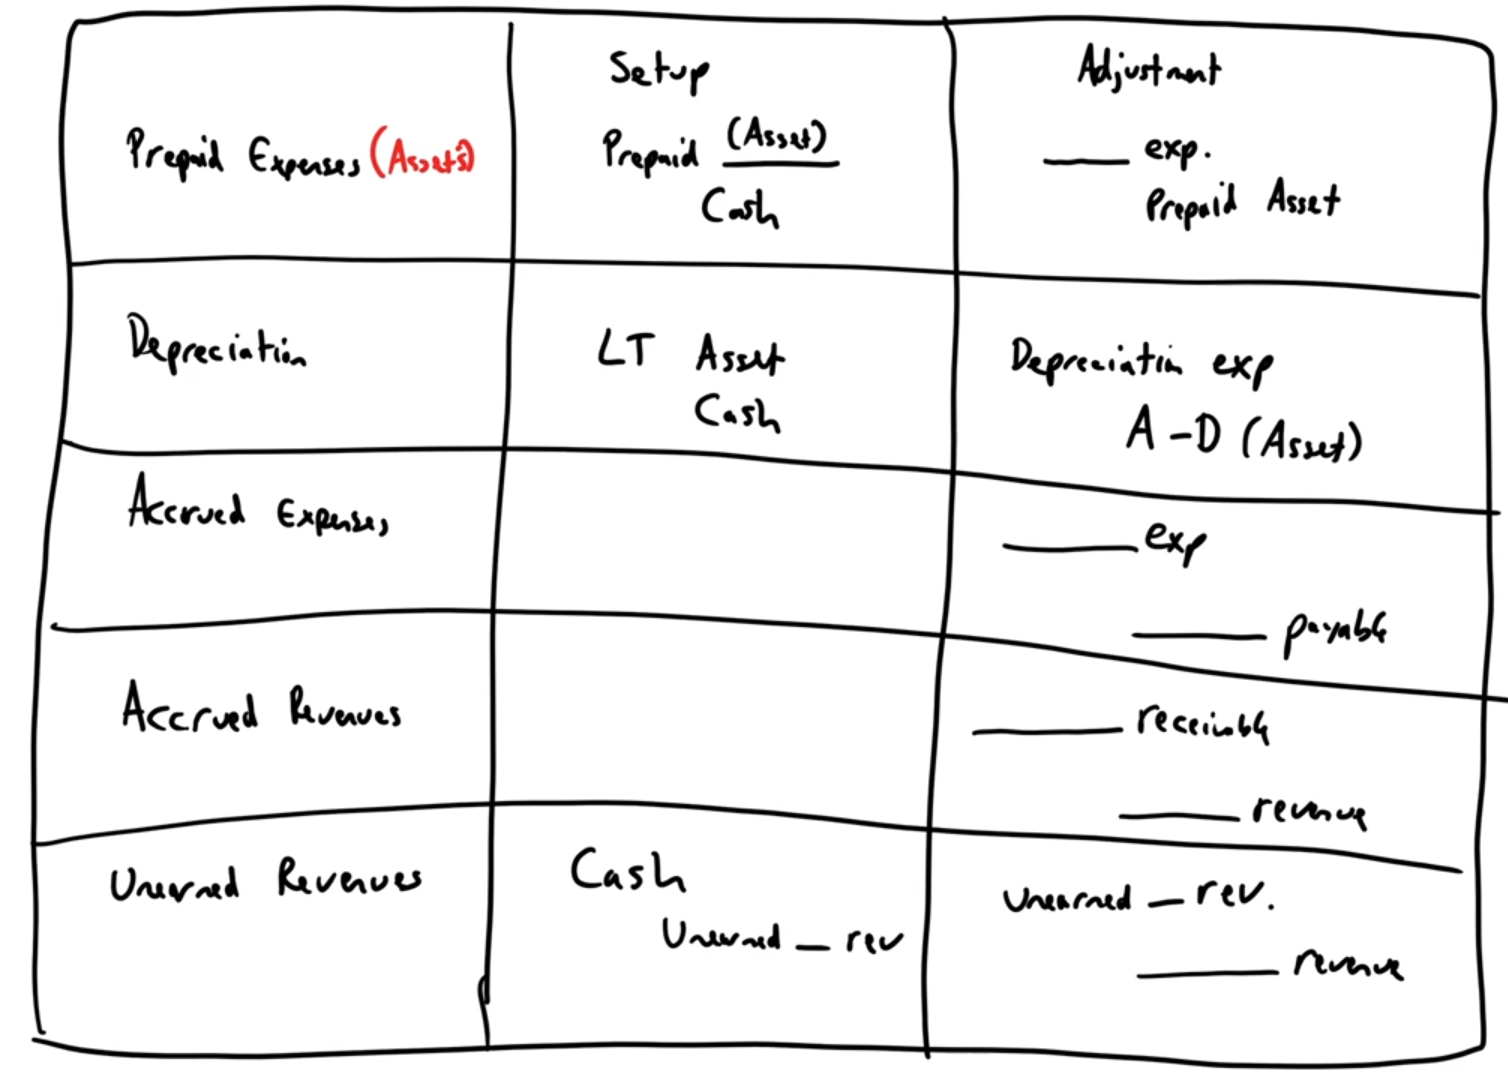 Setup
Adjustment
Prepaid Expenses (Assets)
Prepaid (Asset)
Cash
____ exp.
Prepaid Asset
Depreciation
LT Asset
Cash
Depreciation exp
A-D (Asset)
Accrued Expenses
____ exp
____ payable
Accrued Revenues
____ receivable
____ revenue
Unearned Revenues
Cash
Unearned _ rev
Unearned _ rev.
____ revenue